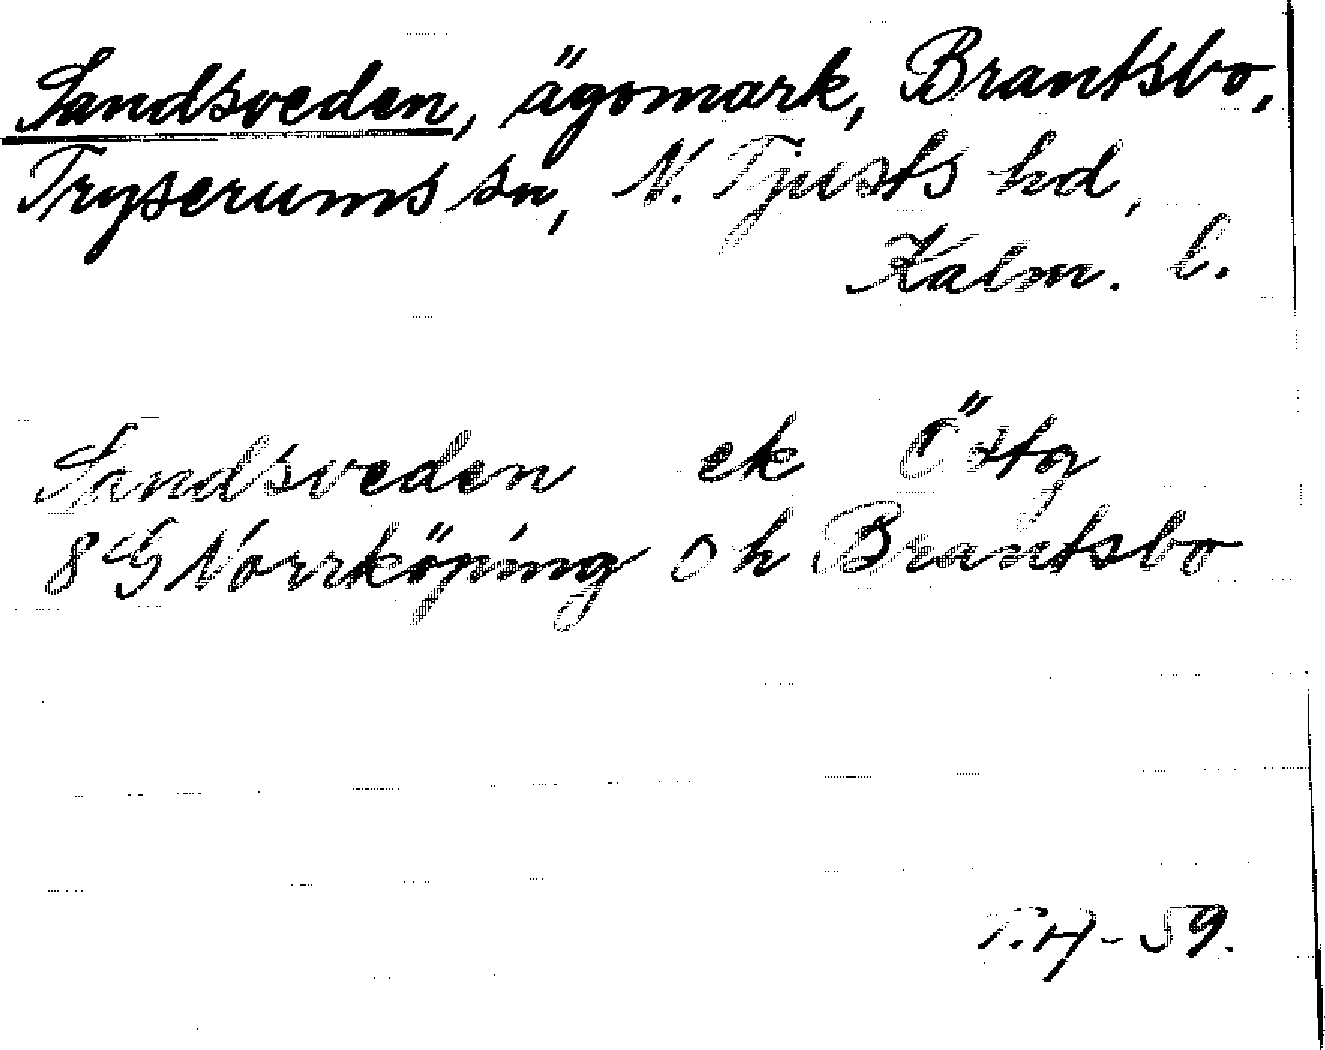 Sandsveden, ägomark, Brantsbo,
Tryserums sn, N. Tjusts hd,
Kalm. l.
Sandsveden ek Östg
8 G Norrköping Ö h Brantsbo
T.H-59.